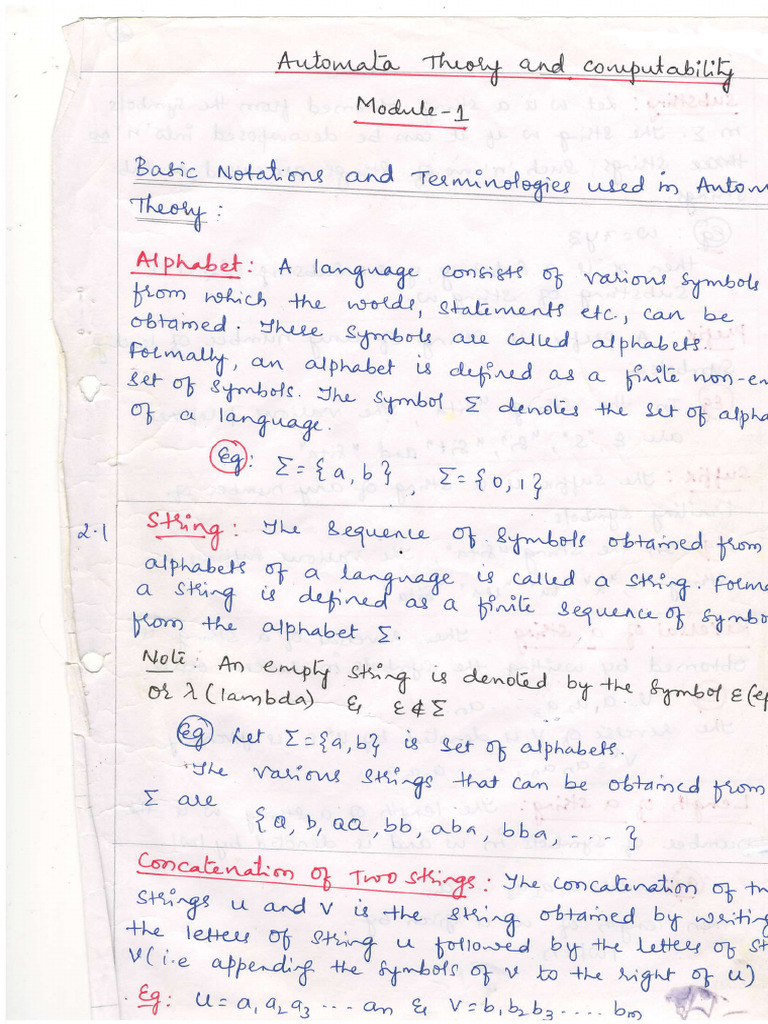 Automata Theory and Computability
Module-1
Basic Notations and Terminologies used in Autom
Theory:
Alphabet: A language consists of various symbols
from which the words, statements etc., can be
obtained. These symbols are called alphabets.
Formally, an alphabet is defined as a finite non-em
set of symbols. The symbol Σ denotes the set of alpha
of a language.
Eg: Σ={a,b}, Σ={0,1}
2.1 String: The sequence of symbols obtained from
alphabets of a language is called a string. Forma
a string is defined as a finite sequence of symbo
from the alphabet Σ.
Note: An empty string is denoted by the symbol ε(ep
or λ(lambda) & ε∉Σ
eg Let Σ={a,b} is set of alphabets.
The various strings that can be obtained from
Σ are
{a, b, aa, bb, aba, bba, .... }
Concatenation of Two Strings: The concatenation of tw
strings u and v is the string obtained by writing
the letters of string u followed by the letters of st
v(i.e appending the symbols of v to the right of u)
Eg: u = a₁a₂a₃ ... an & v=b₁b₂b₃.... bm